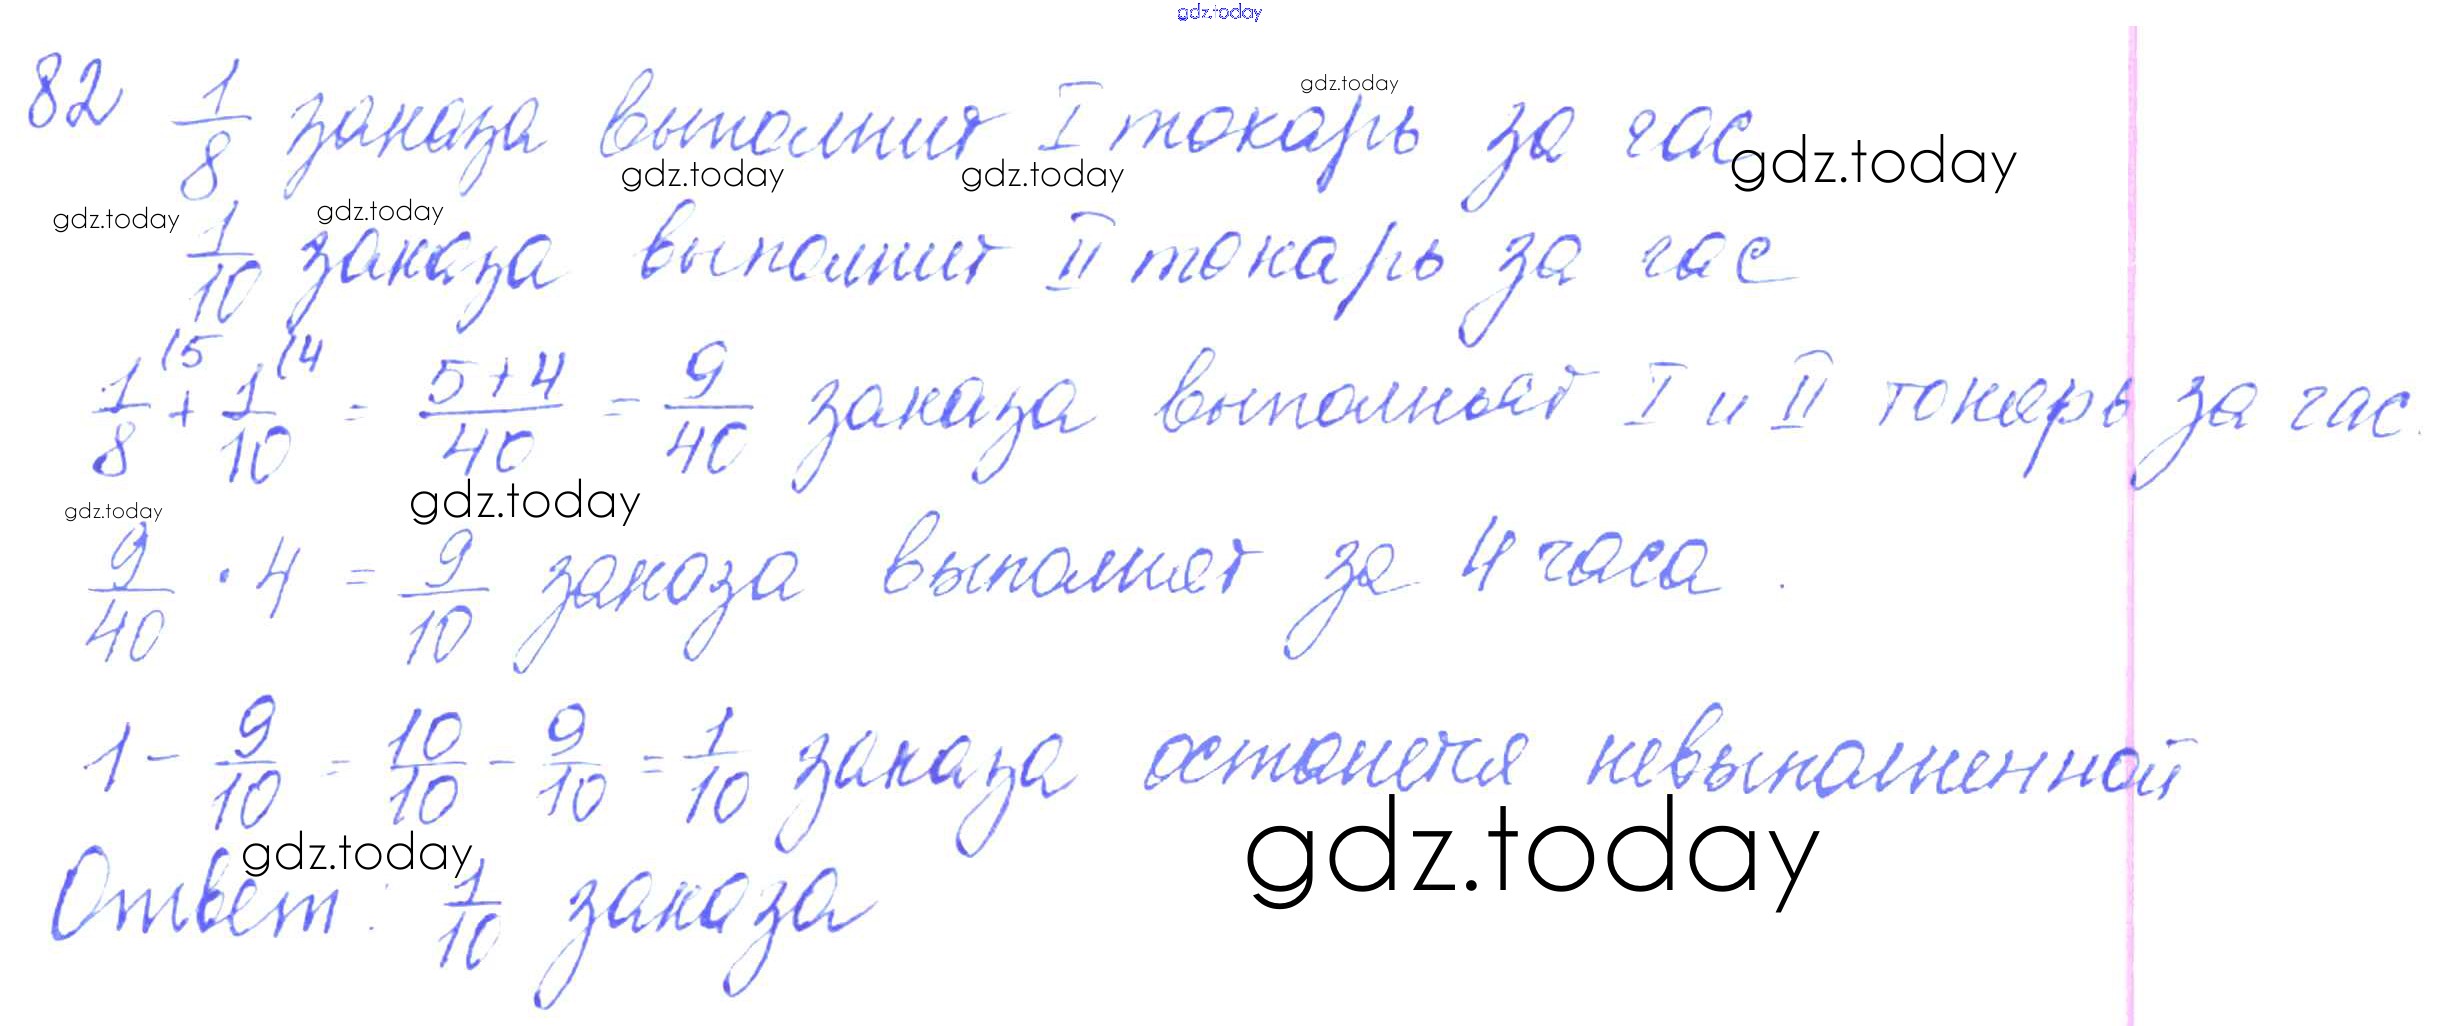 gdz.today
82 1/8 заказа выполнит I токарь за час
gdz.today
gdz.today gdz.today gdz.today
gdz.today gdz.today
1/10 заказа выполнит II токарь за час
1/8 (5 + 1/10 (4 = 5+4/40 = 9/40 заказа выполнят I и II токарь за час.
gdz.today gdz.today
9/40 · 4 = 9/10 заказа выполнят за 4 часа.
1 - 9/10 = 10/10 - 9/10 = 1/10 заказа останется невыполненной
gdz.today gdz.today
Ответ: 1/10 заказа